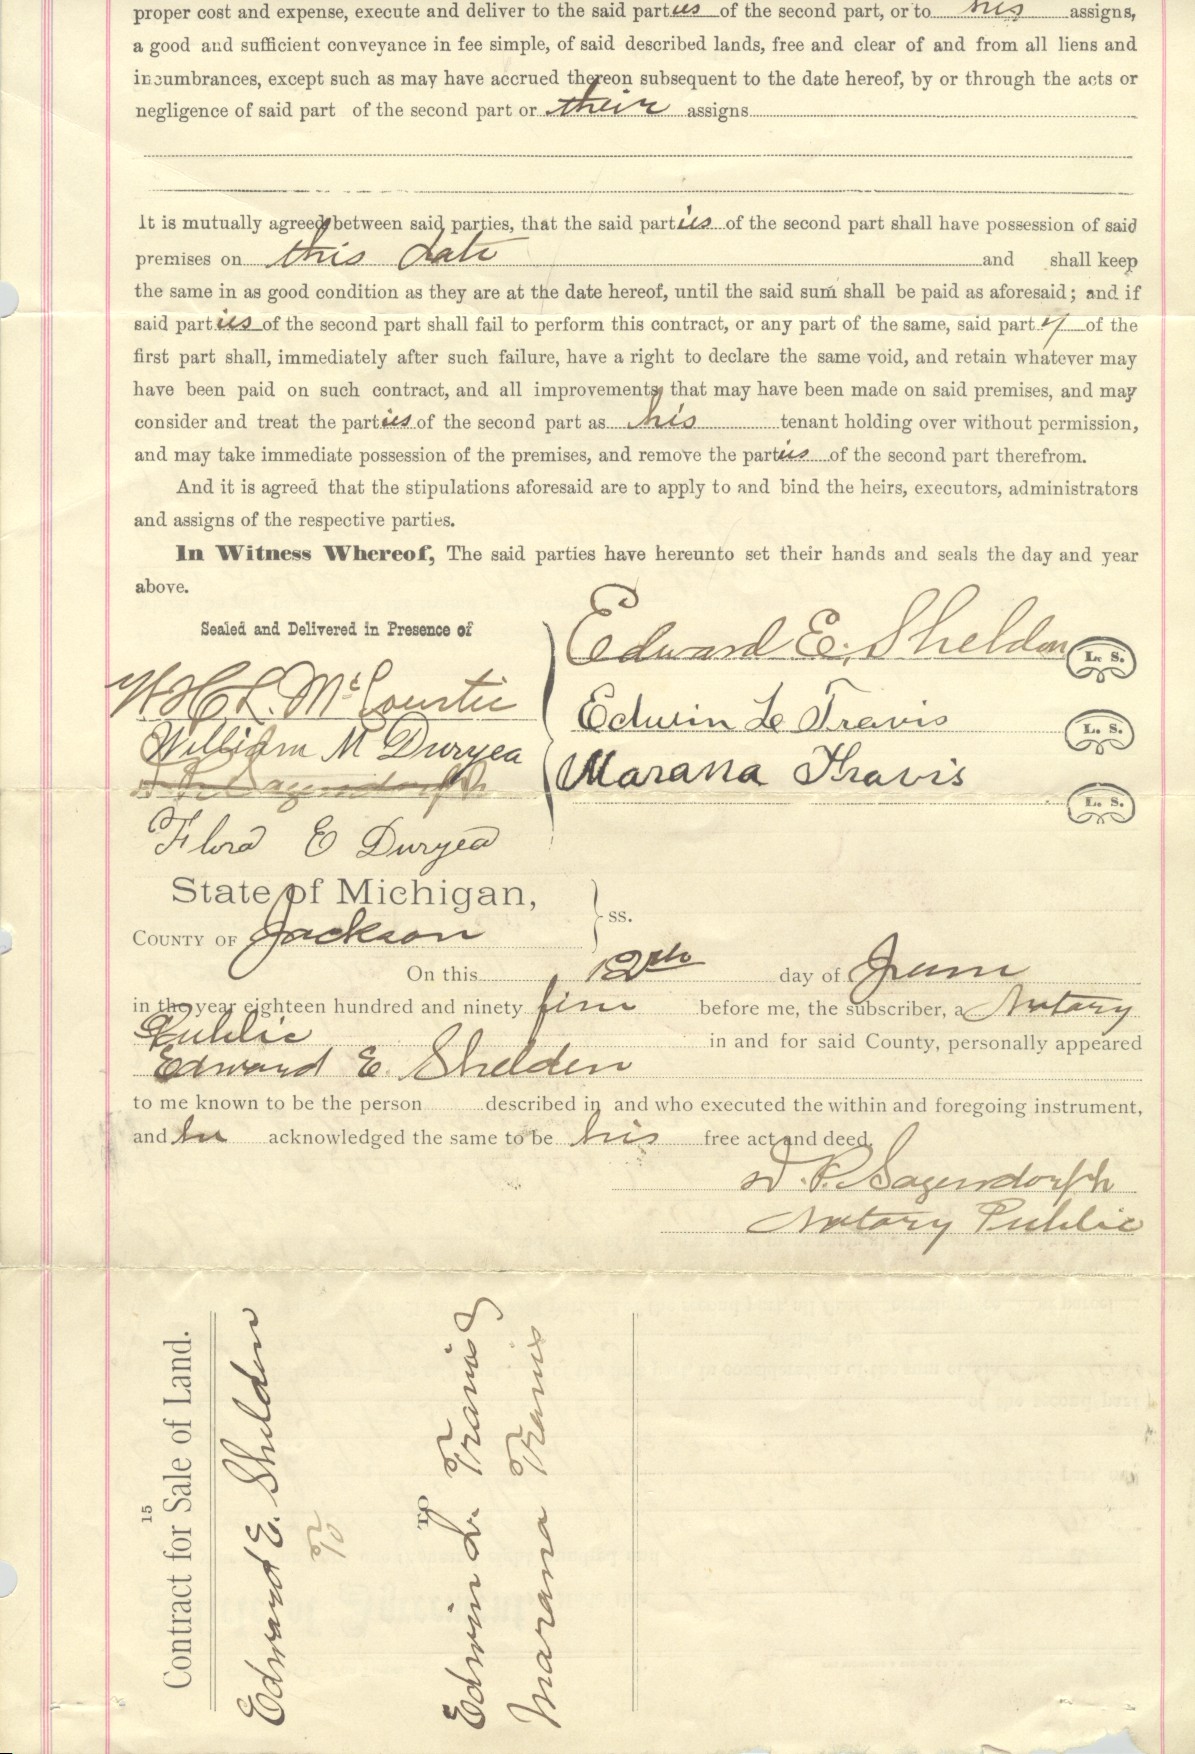 proper cost and expense, execute and deliver to the said parties of the second part, or to his assigns,
a good and sufficient conveyance in fee simple, of said described lands, free and clear of and from all liens and
incumbrances, except such as may have accrued thereon subsequent to the date hereof, by or through the acts or
negligence of said part of the second part or their assigns
It is mutually agreed between said parties, that the said parties of the second part shall have possession of said
premises on this date and shall keep
the same in as good condition as they are at the date hereof, until the said sum shall be paid as aforesaid; and if
said parties of the second part shall fail to perform this contract, or any part of the same, said party of the
first part shall, immediately after such failure, have a right to declare the same void, and retain whatever may
have been paid on such contract, and all improvements that may have been made on said premises, and may
consider and treat the parties of the second part as his tenant holding over without permission,
and may take immediate possession of the premises, and remove the parties of the second part therefrom.
And it is agreed that the stipulations aforesaid are to apply to and bind the heirs, executors, administrators
and assigns of the respective parties.
In Witness Whereof, The said parties have hereunto set their hands and seals the day and year
above.
Sealed and Delivered in Presence of
W H L. McCourtie
William M Duryea
Flora E Duryea
Edward E. Sheldon L. S.
Edwin L Travis L. S.
Marana Travis
L. S.
State of Michigan,
COUNTY OF Jackson ss.
On this 12th day of June
in the year eighteen hundred and ninety five before me, the subscriber, a Notary
Public in and for said County, personally appeared
Edward E. Shelden
to me known to be the person described in and who executed the within and foregoing instrument,
and he acknowledged the same to be his free act and deed.
D. P. Sagendorph
Notary Public
15
Contract for Sale of Land.
Edward E. Shelden
To
TO
Edwin L. Travis
Marana Travis